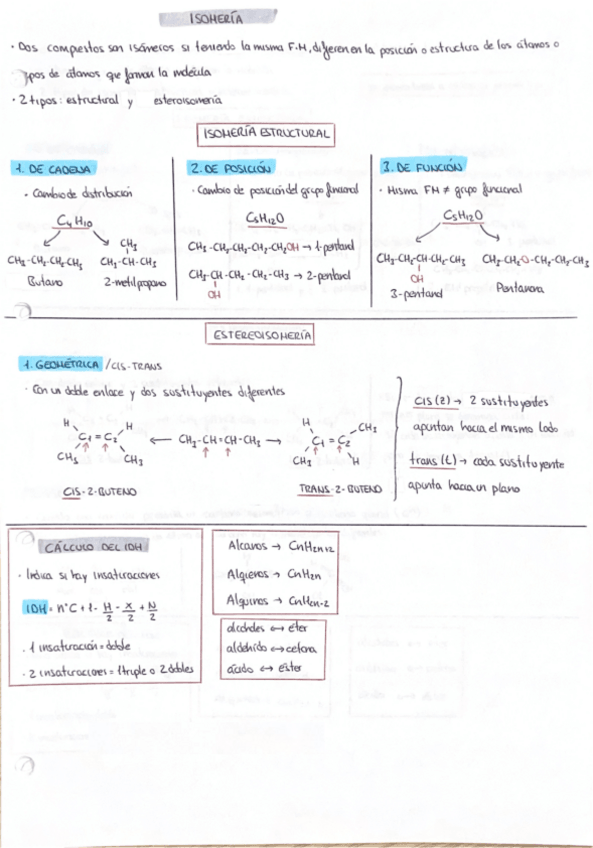 ISOMERÍA
· Dos compuestos son isómeros si teniendo la misma F.M, difieren en la posición o estructura de los átomos o
tipos de átomos que forman la molécula
· 2 tipos: estructural y esteroisomería
ISOMERÍA ESTRUCTURAL
1. DE CADENA
· Cambio de distribución
C4H10
CH3-CH2-CH2-CH3
CH3
CH3-CH-CH3
Butano
2-metilpropano
2. DE POSICIÓN
· Cambio de posición del grupo funcional
C5H12O
CH3-CH2-CH2-CH2-CH2OH → 1-pentanol
CH3-CH-CH2-CH2-CH3 → 2-pentanol
OH
3. DE FUNCIÓN
· Misma FM ≠ grupo funcional
C5H12O
CH3-CH2-CH-CH2-CH3
OH
3-pentanol
CH3-CH2-O-CH2-CH2-CH3
Pentanona
ESTEREOISOMERÍA
1. GEOMÉTRICA / CIS-TRANS
· Con un doble enlace y dos sustituyentes diferentes
H H
C1 = C2
CH3 CH3
CIS-2-BUTENO
← CH3-CH=CH-CH3 →
↑ ↑
H CH3
C1 = C2
CH3 H
TRANS-2-BUTENO
cis (z) → 2 sustituyentes
apuntan hacia el mismo lado
trans (t) → cada sustituyente
apunta hacia un plano
CÁLCULO DEL IDH
· Indica si hay insaturaciones
IDH = nºC + 1 - H/2 - X/2 + N/2
· 1 insaturación = doble
· 2 insaturaciones = 1 triple o 2 dobles
Alcanos → CnH2n+2
Alquenos → CnH2n
Alquinos → CnH2n-2
alcoholes ↔ éter
aldehído ↔ cetona
ácido ↔ éster